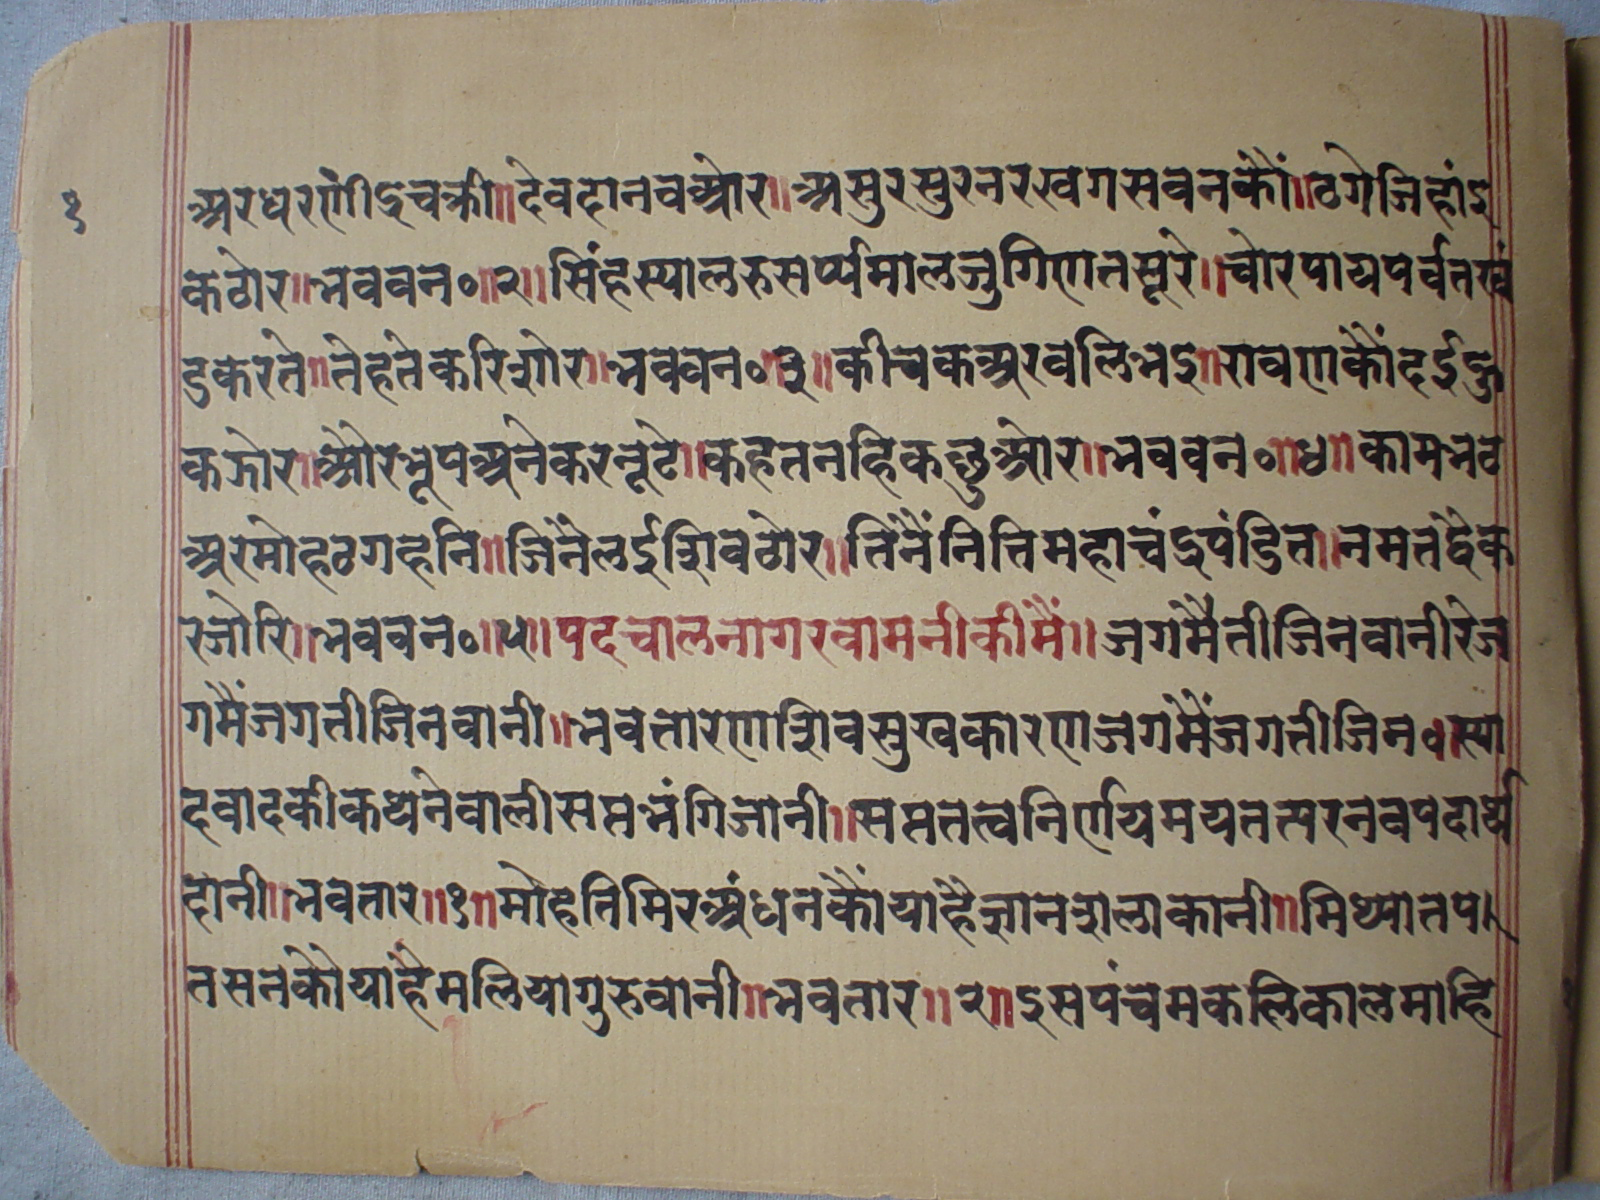 १
अरधरणींद्रचक्री॥देवदानवओर॥असुरसुरनरखगसबनकौं॥ठगेजिहांइ
कठोर॥भवबन०॥२॥सिंहस्यालरुसर्प्पमालजुगिणतसूरे॥चोरपायपर्वतखं
डकरते॥तेहतेकरिशोर॥भवबन०॥३॥कीचकअरबलिभइ॥रावणकौंदईझु
कजोर॥औरभूपअनेकरनूटे॥कहतनहिकछुओर॥भवबन०॥४॥कामभट
अरमोहठगहनि॥जिनैंलईशिवठोर॥तिनैंनित्तिमहाचंद्रपंडित॥नमतद्वैक
रजोरि॥भवबन०॥५॥पदचालनागरबामनीकीमैं॥जगमैतीजिनवानीरेज
गमैंजगतीजिनवानी॥भवतारणशिवसुखकारणजगमैंजगतीजिन०॥स्या
दवादकीकथनेवालीसप्तभंगिजानी॥सप्ततत्वनिर्णयमयतत्परनवपदार्थ
दानी॥भवतार॥१॥मोहतिमिरअंधनकौंयाहैज्ञानशलाकानी॥मिथ्यातप
तसनकोयाहैमलियागुरुवानी॥भवतार॥२॥इसपंचमकलिकालमाहि